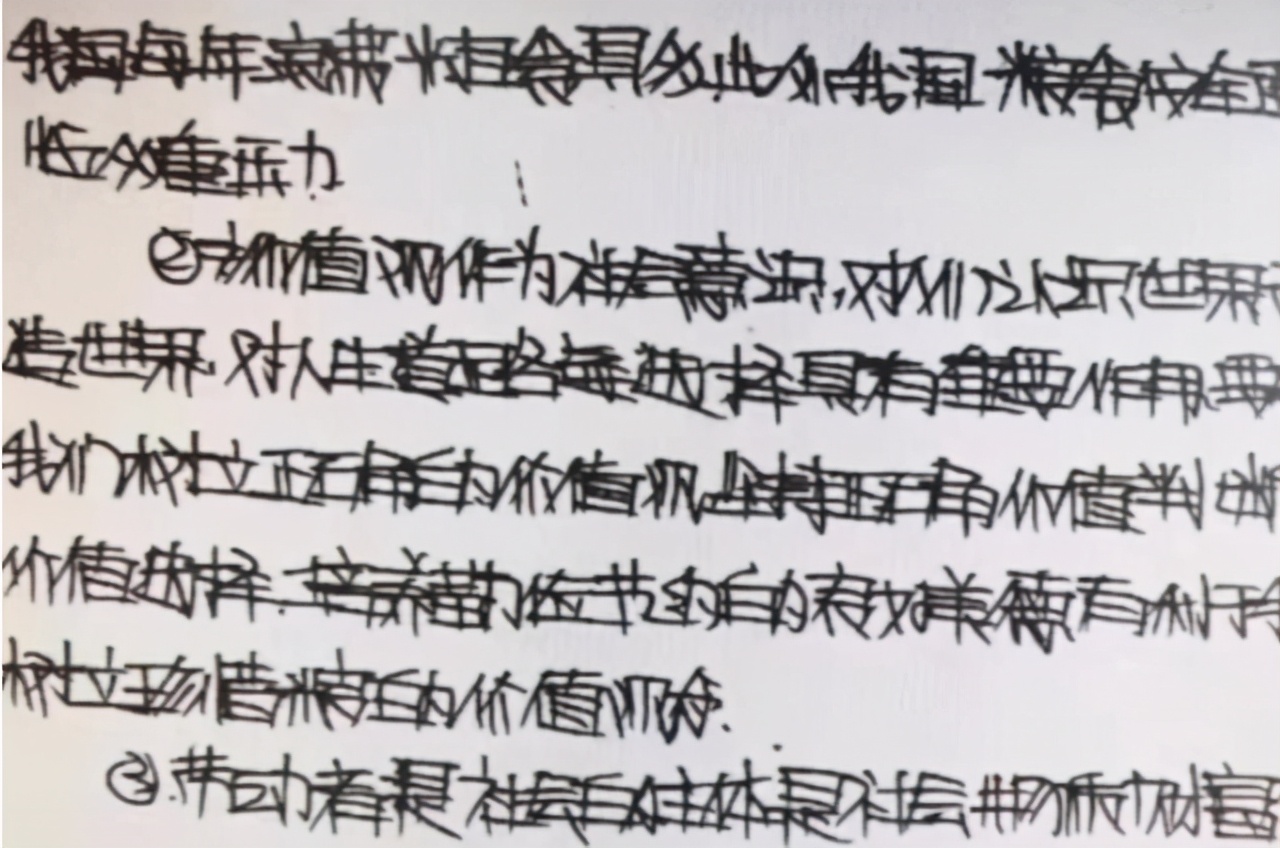 我国每年浪费粮食具多,此对我国粮食安全
造成重压力
②价值观作为社会意识,对人们认识世界
造世界,对人生道路的选择具有重要作用要
我们树立正确的价值观坚持正确价值判断
价值选择.培养勤俭节约的传统美德有利于
树立珍惜粮食的价值观念.
③.劳动者是社会的主体是社会物质财富